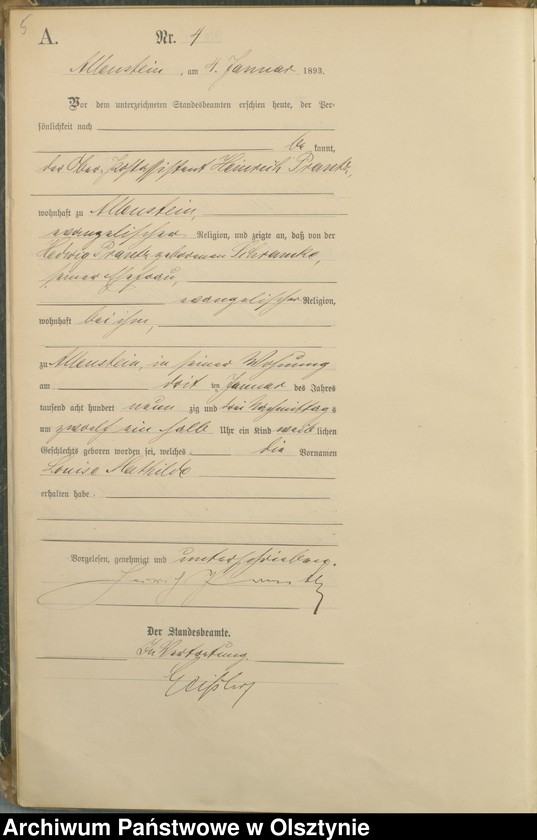 5
A.
Nr. 4
Allenstein, am 4. Januar 1893.
Vor dem unterzeichneten Standesbeamten erschien heute, der Per-
sönlichkeit nach
be kannt,
der Ober-Postassistent Heinrich
wohnhaft zu Allenstein,
evangelischer Religion, und zeigte an, daß von der
Hedwig geborenen
seiner Ehefrau,
evangelischer Religion,
wohnhaft bei ihm,
zu Allenstein, in seiner Wohnung
am dritten Januar des Jahres
tausend acht hundert neun zig und drei Nachmittags
um zwölf ein halb Uhr ein Kind weiblichen
Geschlechts geboren worden sei, welches die Vornamen
Louise Mathilde
erhalten habe.
Vorgelesen, genehmigt und unterschrieben.
Heinrich
Der Standesbeamte.
In Vertretung
Archiwum Państwowe w Olsztynie